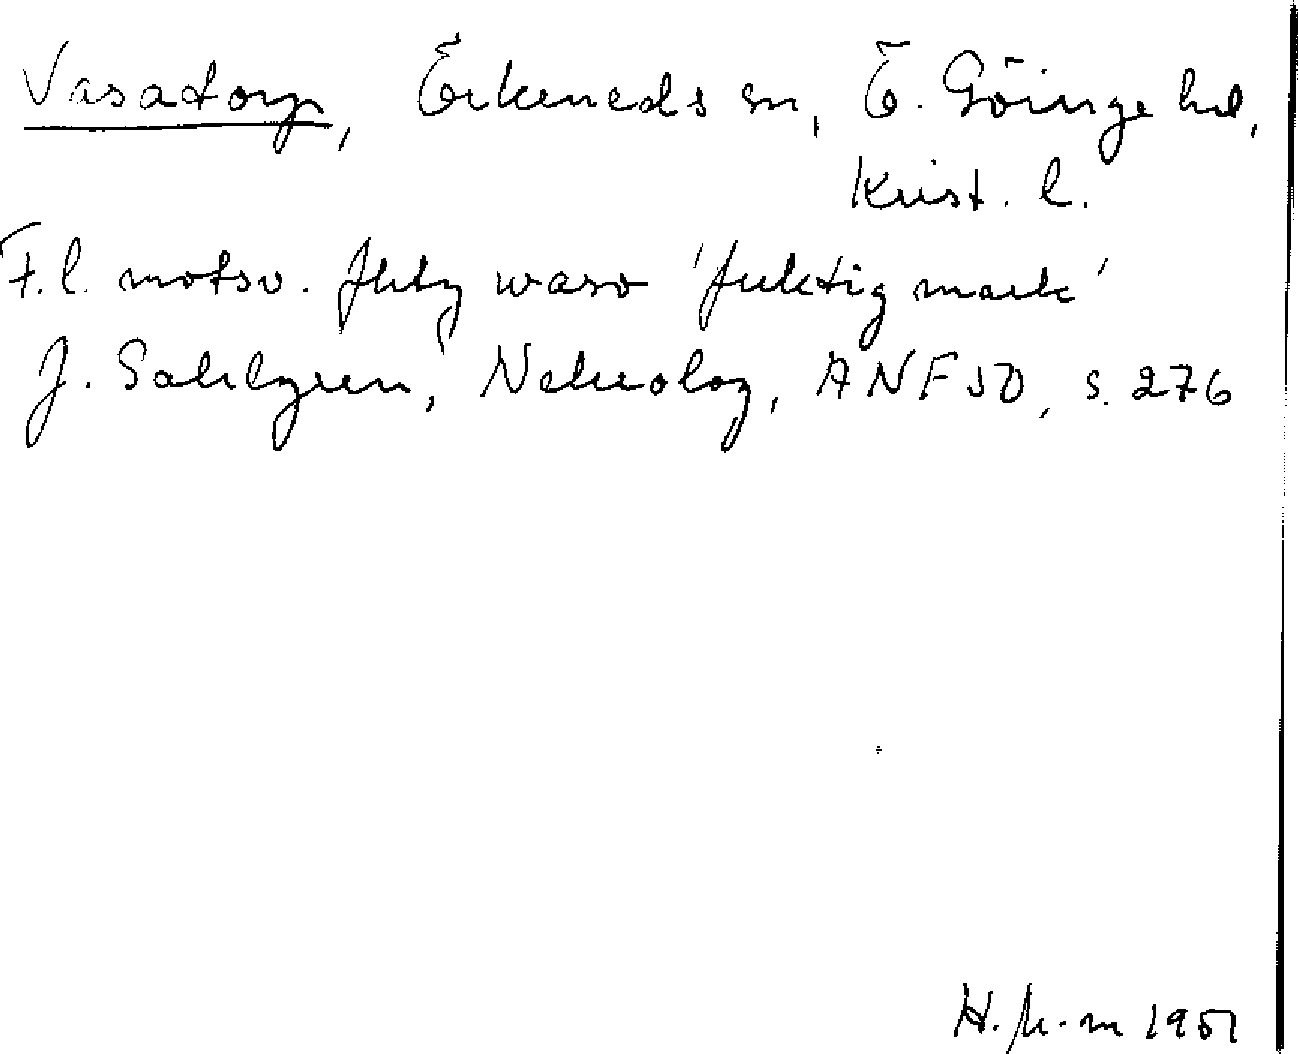 Vasatorp, Örkeneds sn, Ö. Göinge hd,
Krist. l.
F.l. motsv. fhty waso 'fuktig mark'
J. Sahlgren, Nekrolog, ANF 50, s. 276
1951